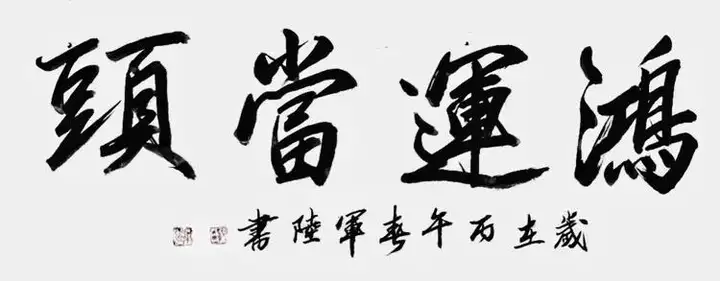 鴻運當頭
歲在丙午春軍陸書